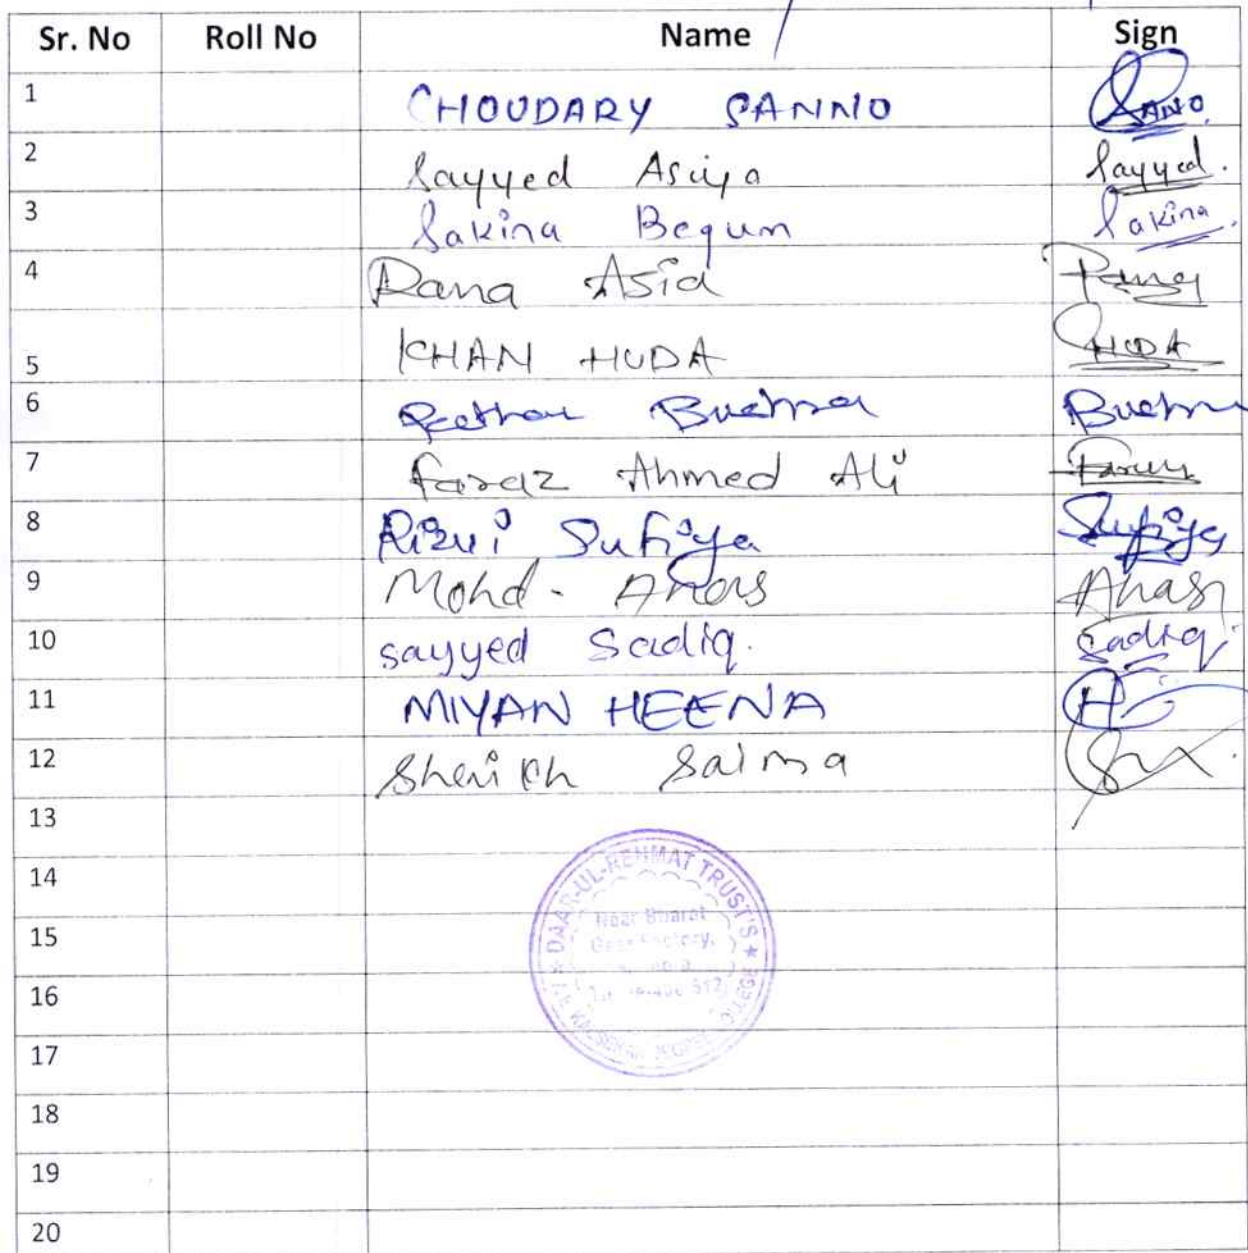 Sr. No Roll No Name Sign
1 CHOUDARY SANNO SANO
2 Sayyed Asiya Sayyed.
3 Sakina Begum Sakina
4 Rana Asia Rana
5 KHAN HUDA HUDA
6 Bushra Bushra
7 Faraz Ahmed Ali Faraz
8 Rizvi Sufiya Sufiya
9 Mohd. Anas Anas
10 sayyed Sadiq. Sadiq
11 MIYAN HEENA H
12 Sheikh Saima
13
14
15
16
17
18
19
20
DAAR-UL-REHMAT TRUST'S
Near Bharat
Gear Factory,
COLLEGE